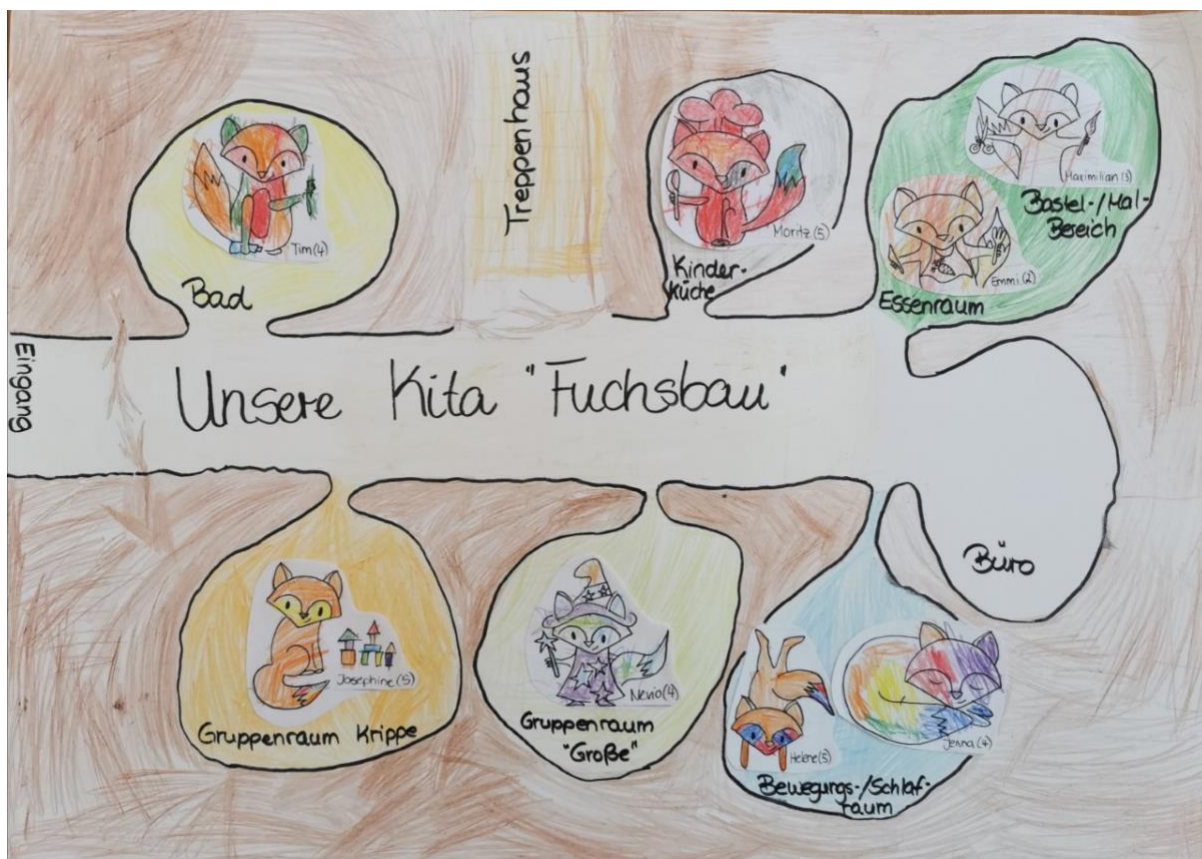 Treppenhaus
Tim(4)
Bad
Moritz(5)
Kinder-
küche
Maximilian(3)
Bastel-/Mal-
Bereich
Emmi(2)
Essenraum
Eingang
Unsere Kita "Fuchsbau"
Büro
Josephine(5)
Gruppenraum Krippe
Nevio(4)
Gruppenraum
"Große"
Helene(5)
Jenna(4)
Bewegungs-/Schlaf-
raum